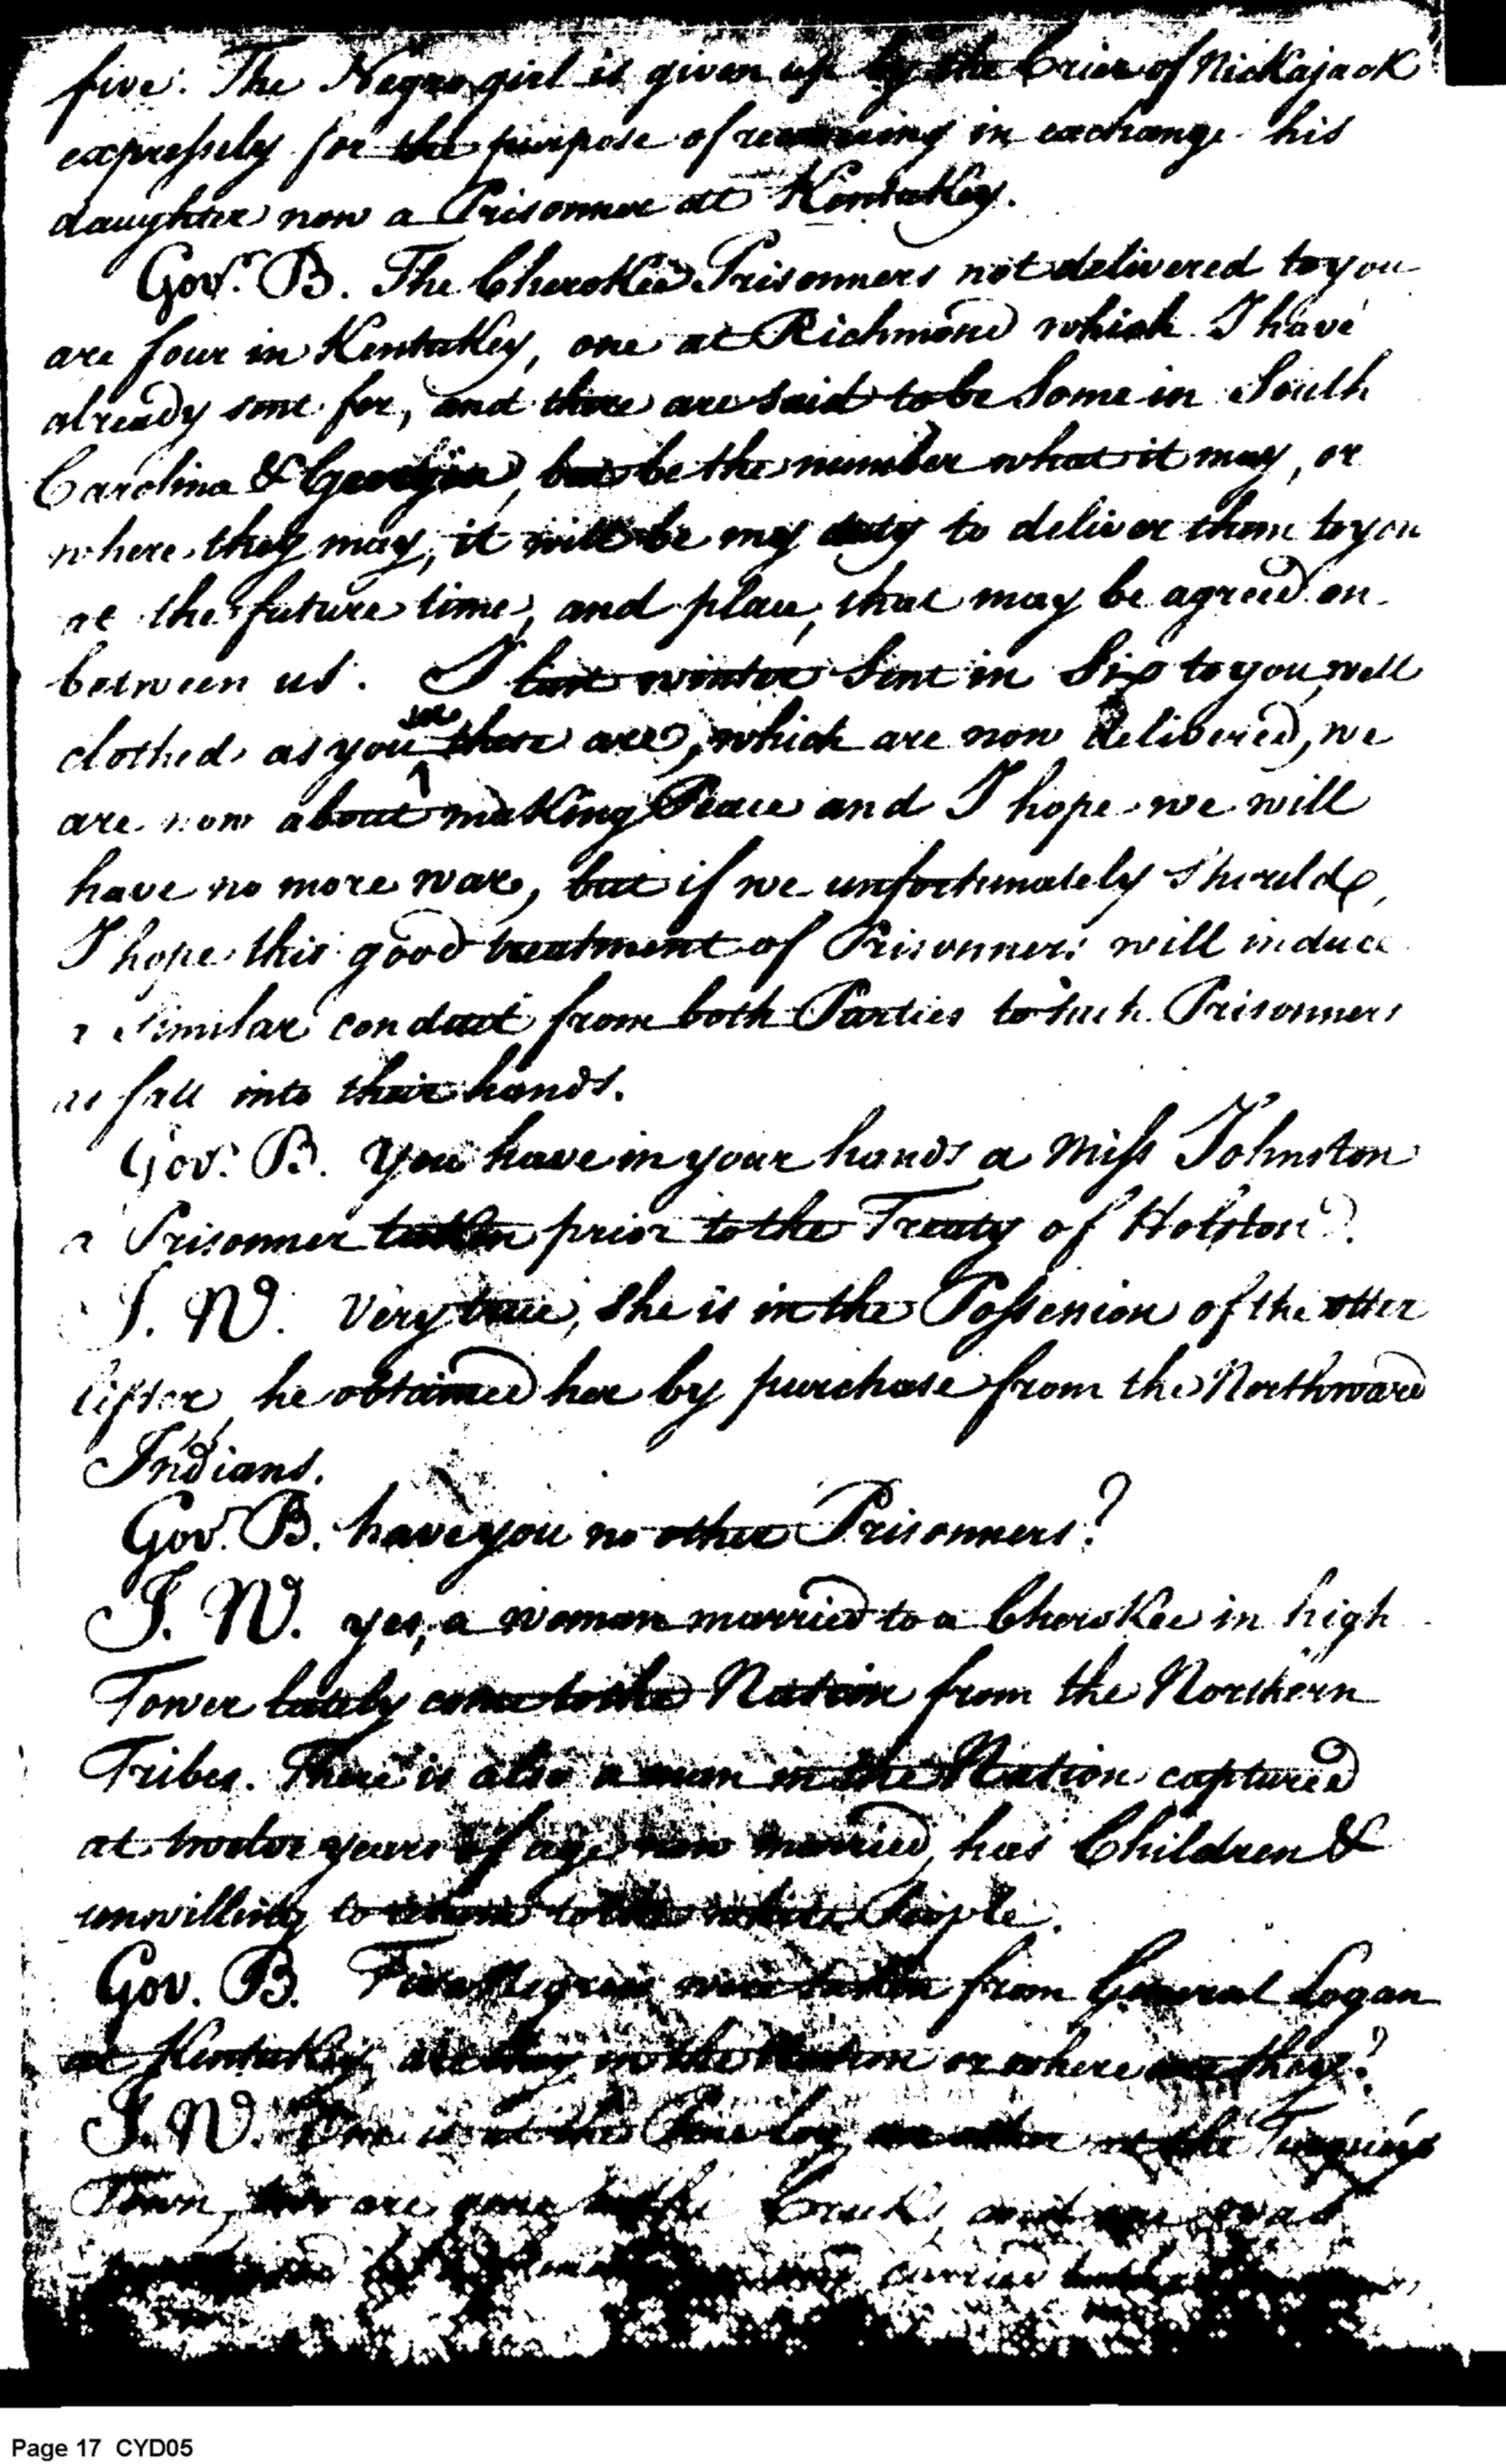 five. The Negro girl is given up by the Crier of Nickajack
expressely for the purpose of receiving in exchange his
daughter now a Prisonner at Kentuckey.
Gov.r B. The Cherokee Prisonners not delivered to you
are four in Kentuckey, one at Richmond which I have
already sent for, and there are said to be Some in South
Carolina & Georgia, but be the number what it may, or
where they may, it will be my duty to deliver them to you
at the future time, and place, that may be agreed on
between us. I last winter Sent in Six to you well
clothed as you see these are, which are now delivered, we
are now about making Peace and I hope we will
have no more war, but if we unfortunately should,
I hope this good treatment of Prisonners will induce
a Similar conduct from both Parties to such Prisonners
as fall into their hands.
Gov.r B. You have in your hands a Miss Johnston
a Prisonner taken prior to the Treaty of Holston?
J. W. Very true, She is in the Possession of the otter
lifter he obtained her by purchase from the Northward
Indians.
Gov.r B. have you no other Prisonners?
J. W. yes, a woman married to a Cherokee in high
Tower lately come to the Nation from the Northern
Tribes. There is also a man in the Nation captured
at twelve years of age now married, has Children &
unwilling to return to the white People.
Gov. B. Five Negroes were taken from General Logan
at Kentuckey, are they in the Nation or where are they?
J. W. One is at the Pine log, another at the Turquins
Town, two are gone to the Creeks, and one was
carried
Page 17 CYD05